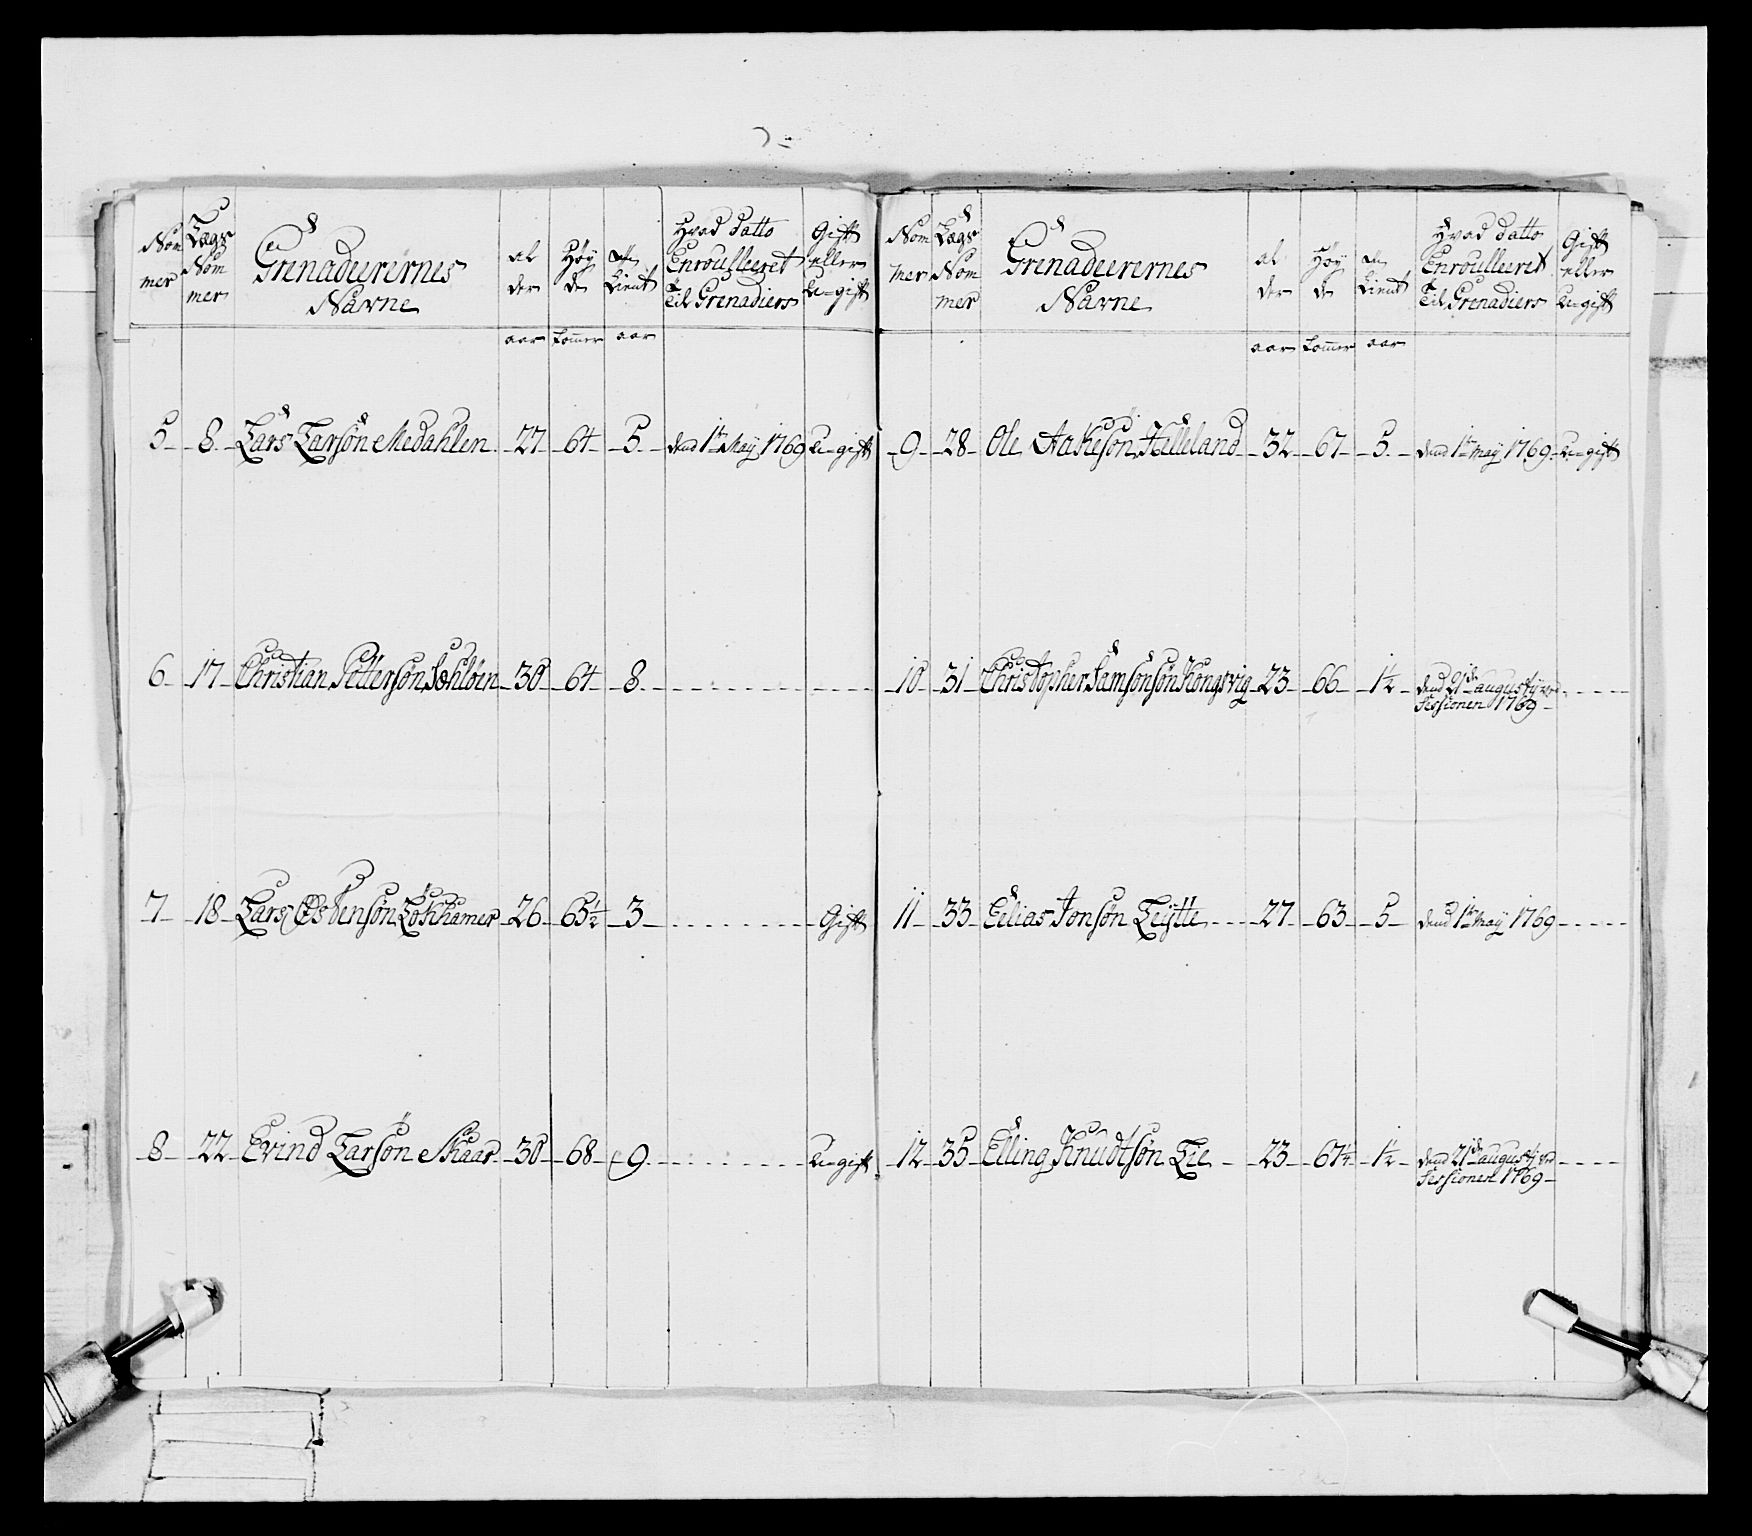 Nom mer | Lægs Nom mer | Grenadeerernes Navne | al der | Høy de | Tient | Hvad datto Enroulleeret Til Grenadiers | Gift eller U=gift
aar | tommer | aar
5 | 8 | Lars Larsøn Medahlen | 27 | 64 | 5 | dend 1te May 1769 | U=gift
6 | 17 | Christian Pettersøn | 30 | 64 | 8
7 | 18 | Lars | 26 | 65½ | 3 | Gift
8 | 22 | Evind Larsøn Skaar | 30 | 68 | 9 | U=gift
Nom mer | Lægs Nom mer | Grenadeerernes Navne | al der | Høy de | Tient | Hvad datto Enroulleeret Til Grenadiers | Gift eller U=gift
aar | tommer | aar
9 | 28 | Ole Aakesøn Helleland | 32 | 67 | 5 | dend 1te May 1769 | U=gift
10 | 31 | Christopher Samsonsøn Kongsvig | 23 | 66 | 1½ | dend 21de augusty ved
Sessionen 1769
11 | 33 | Eelias Jonsøn Teÿtte | 27 | 63 | 5 | dend 1te May 1769
12 | 35 | Elling Knudtsøn Lie | 23 | 67¼ | 1½ | dend 21de augusty ved
Sessionen 1769